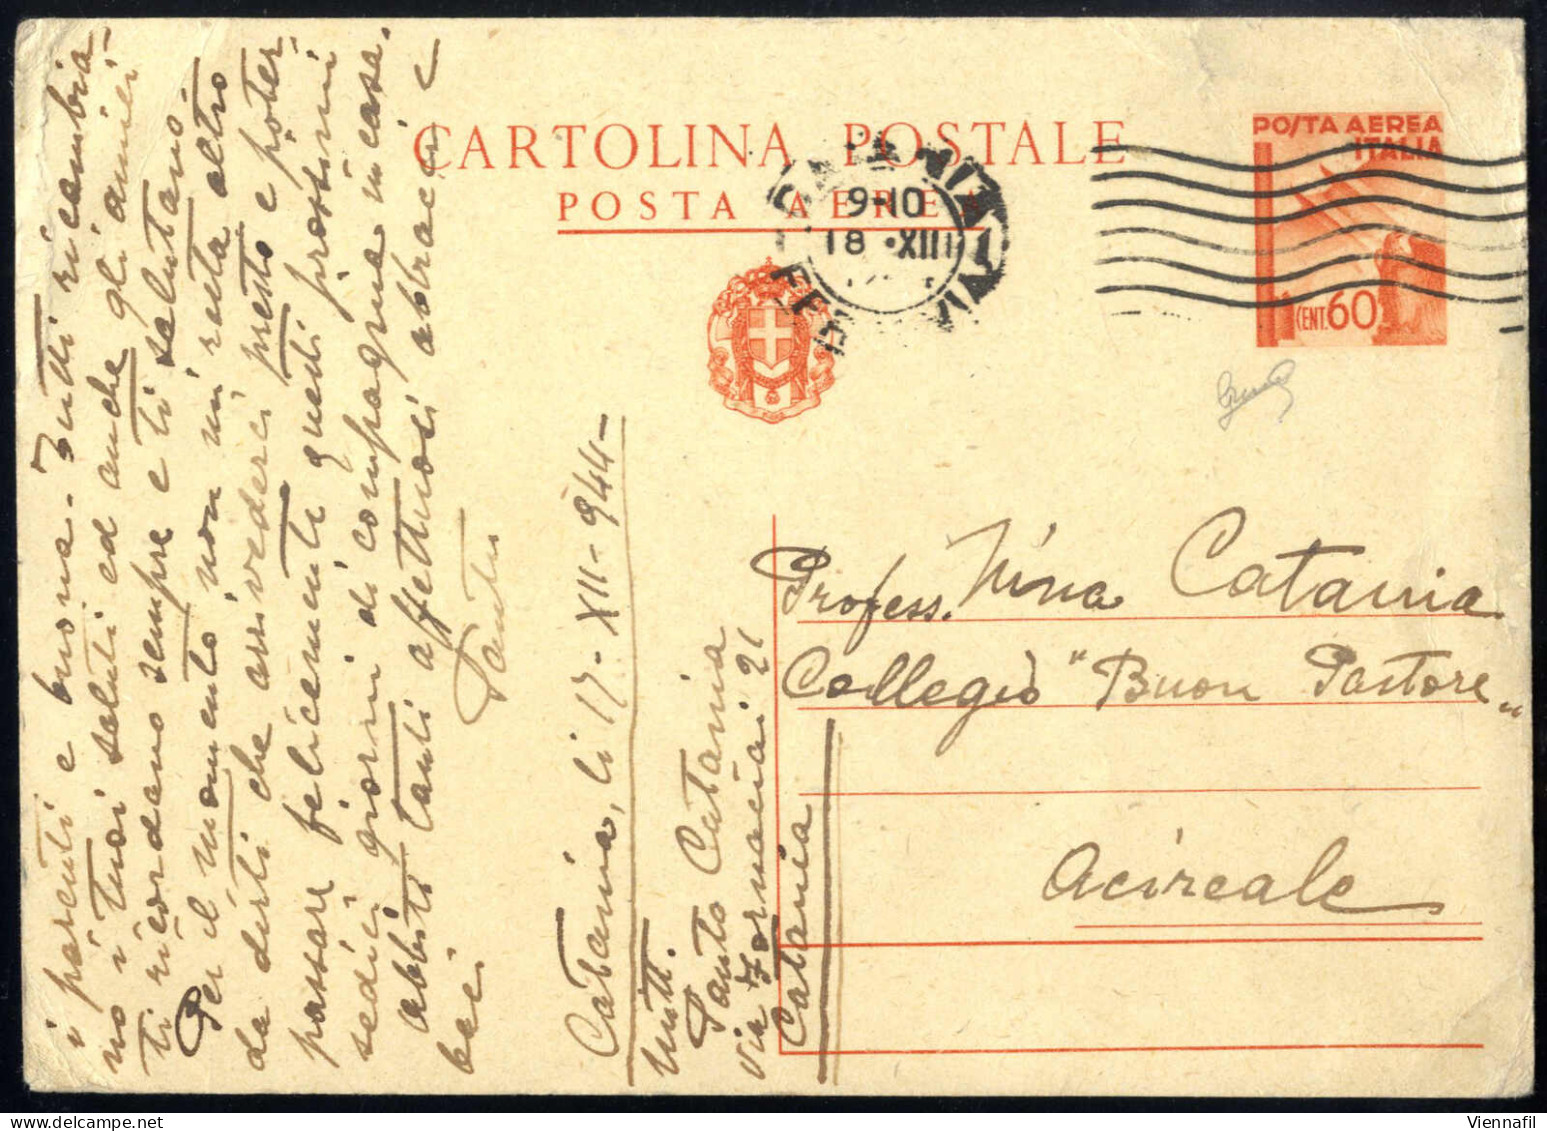 CARTOLINA POSTALE
POSTA AEREA
POSTA AEREA
ITALIA
CENT. 60
9-10
18 · XII
i parenti e buona - Tutti ricambia-
no i tuoi saluti ed anche gli amici
ti ricordano sempre e ti salutano.
Per il momento non mi resta altro
da dirti che arrivederci presto e poter
passare felicemente questi prossimi
sedici giorni di compagnia in casa.
Abbiti tanti affettuosi abbracci e
baci
Santo
Catania, li 17-XII-944-
Mitt.
Santo Catania
via Fornaciai 21
Catania
Profess. Nina Catania
Collegio "Buon Pastore"
Acireale
Viennafil